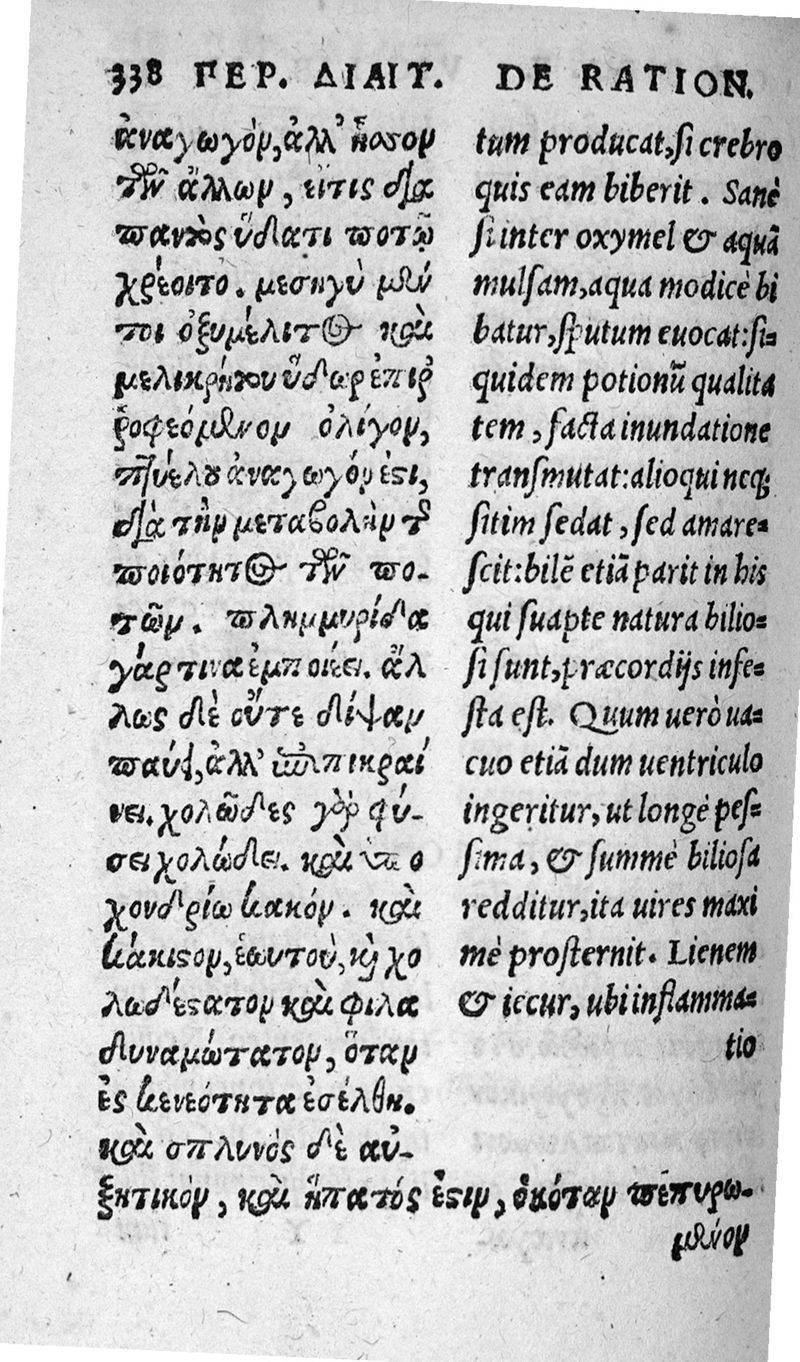 338 ΠΕΡ. ΔΙΑΙΤ. DE RATION.
ἀναγωγὸν, ἀλλ' ἧσσον
τῶν ἄλλων, εἴτις διὰ
παντὸς ὕδατι ποτῷ
χρέοιτο. μεσηγὺ μὲν
τοι ὀξυμέλιτος καὶ
μελικρήτου ὕδωρ ἐπιρ
ῥοφεόμενον ὀλίγον,
πτυέλου ἀναγωγόν ἐστι,
διὰ τὴν μεταβολὴν τῆς
ποιότητος τῶν πο-
τῶν. πλημμυρίδα
γάρ τινα ἐμποιέει. ἄλ
λως δὲ οὔτε δίψαν
παύει, ἀλλ' ἐπιπικραί
νει. χολῶδες γὰρ φύ-
σει χολώδει. καὶ ὑπο
χονδρίῳ κακόν. καὶ
κάκιστον, ἑωυτοῦ, καὶ χο
λωδέστατον καὶ φιλα
δυναμώτατον, ὅταν
ἐς κενεότητα ἐσέλθῃ.
καὶ σπλυνὸς δὲ αὐ-
ξητικὸν, καὶ ἥπατός ἐστιν, ὁκόταν πεπυρω-
μένον
tum producat, si crebro
quis eam biberit. Sanè
si inter oxymel & aquã
mulsam, aqua modicè bi
batur, sputum euocat: si=
quidem potionũ qualita
tem, facta inundatione
transmutat: alioqui neq;
sitim sedat, sed amare=
scit: bilẽ etiã parit in his
qui suapte natura bilio=
si sunt, præcordijs infe=
sta est. Quum uerò ua=
cuo etiã dum uentriculo
ingeritur, ut longè pes=
sima, & summè biliosa
redditur, ita uires maxi
mè prosternit. Lienem
& iecur, ubi inflamma=
tio